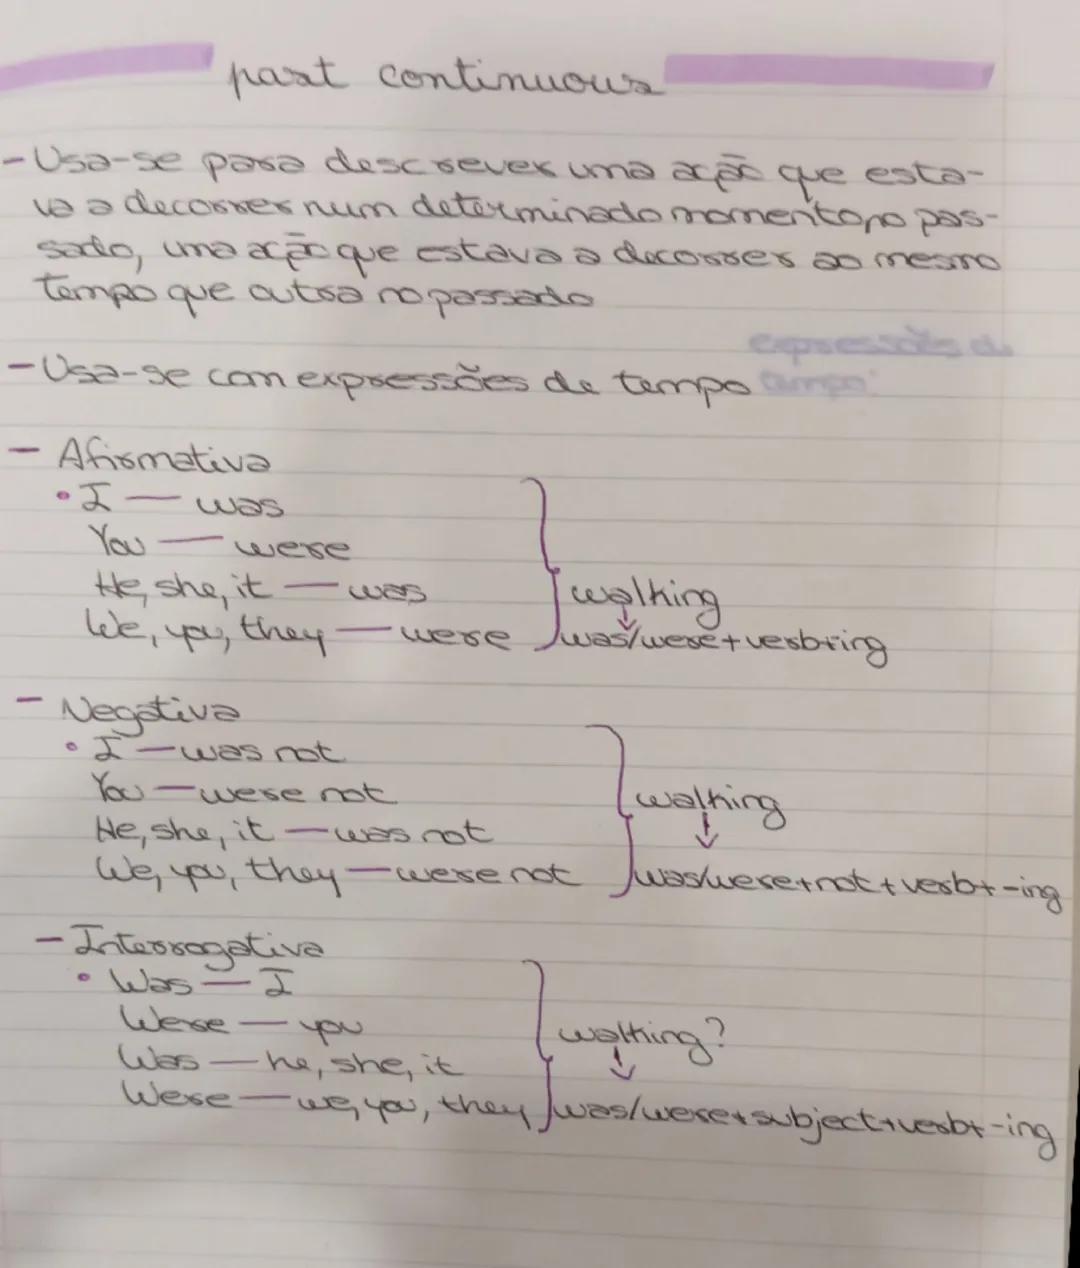 past continuous
- Usa-se para descrever uma ação que esta-
va a decorrer num determinado momento no pas-
sado, uma ação que estava a decorrer ao mesmo
tempo que outra no passado
expressões de
- Usa-se com expressões de tempo tempo:
- Afirmativa
• I — was
You — were
He, she, it — was
walking
We, you, they — were
was/were + verb + ing
- Negativa
• I — was not
You — were not
walking
He, she, it — was not
We, you, they — were not
was/were + not + verb + -ing
- Interrogativa
• Was — I
Were — you
walking?
Was — he, she, it
Were — we, you, they
was/were + subject + verb + -ing